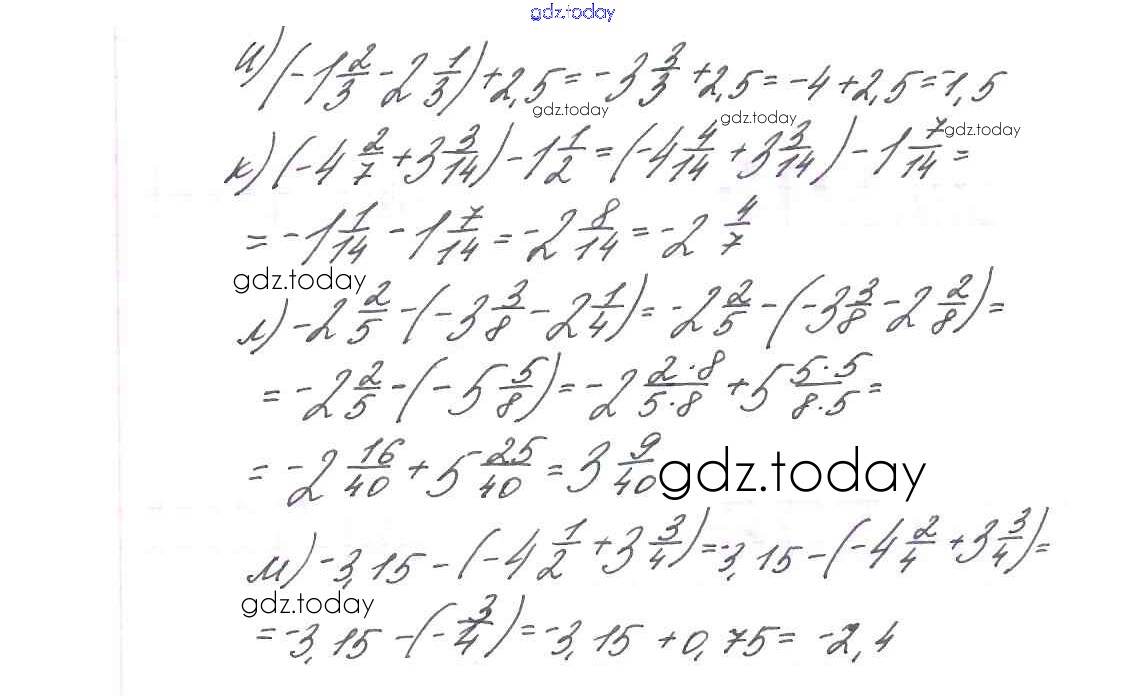 gdz.today
и) (-1 2/3 - 2 1/3) + 2,5 = -3 3/3 + 2,5 = -4 + 2,5 = -1,5
gdz.today gdz.today gdz.today
к) (-4 2/7 + 3 3/14) - 1 1/2 = (-4 4/14 + 3 3/14) - 1 7/14 =
= -1 1/14 - 1 7/14 = -2 8/14 = -2 4/7
gdz.today
л) -2 2/5 - (-3 3/8 - 2 1/4) = -2 2/5 - (-3 3/8 - 2 2/8) =
= -2 2/5 - (-5 5/8) = -2 2·8/5·8 + 5 5·5/8·5 =
= -2 16/40 + 5 25/40 = 3 9/40 gdz.today
м) -3,15 - (-4 1/2 + 3 3/4) = -3,15 - (-4 2/4 + 3 3/4) =
gdz.today
= -3,15 - (-3/4) = -3,15 + 0,75 = -2,4